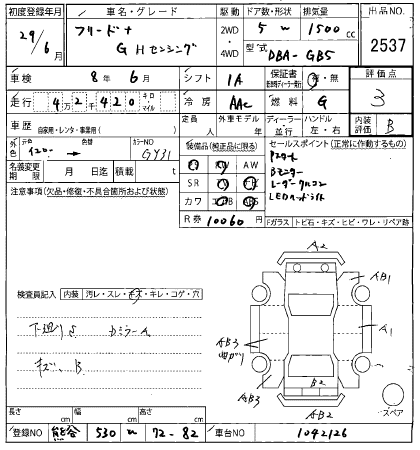 初度登録年月 車名・グレード 駆動 ドア数・形状 排気量 出品NO.
29/6月 フリード+ 2WD 4WD 5W 1500cc 2537
GHセンシング 型式 DBA-GB5
車検 8年6月 シフト IA 保証書 有・無 評価点
走行 4万2千420 キロ・マイル 冷房 AAC 燃料 G 3
車歴 自家用・レンタ・事業用( ) 定員 人 外車モデル 年 ディーラー 並行 ハンドル 左・右 内装評価 B
外色 元色 色替 カラーNO GY31
名義変更期限 月 日迄 積載 t
装備品(純正品に限る) セールスポイント(正常に作動するもの)
PW AW
SR
カワ ABS
R券 10060円
Bモニター
レーダークルコン
LEDヘッドライト
注意事項(欠品・修復・不具合箇所および状態)
Fガラス トビ石・キズ・ヒビ・ワレ・リペア跡
検査員記入 内装 汚レ・スレ・キズ・キレ・コゲ・穴
下廻りS カミラーA
キズ、B
A2
AB1
A1
AB3
曲がり
AB3
B2
AB2
スペア
長さ cm 幅 cm 高さ cm
登録NO 熊谷 530 72-82 車台NO 1042126